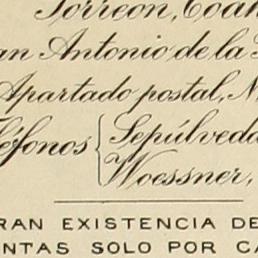 Torreón, Coah
an Antonio de la
Apartado postal, N
léfonos { Sepúlveda
Woessner,
RAN EXISTENCIA DE
NTAS SOLO POR CA